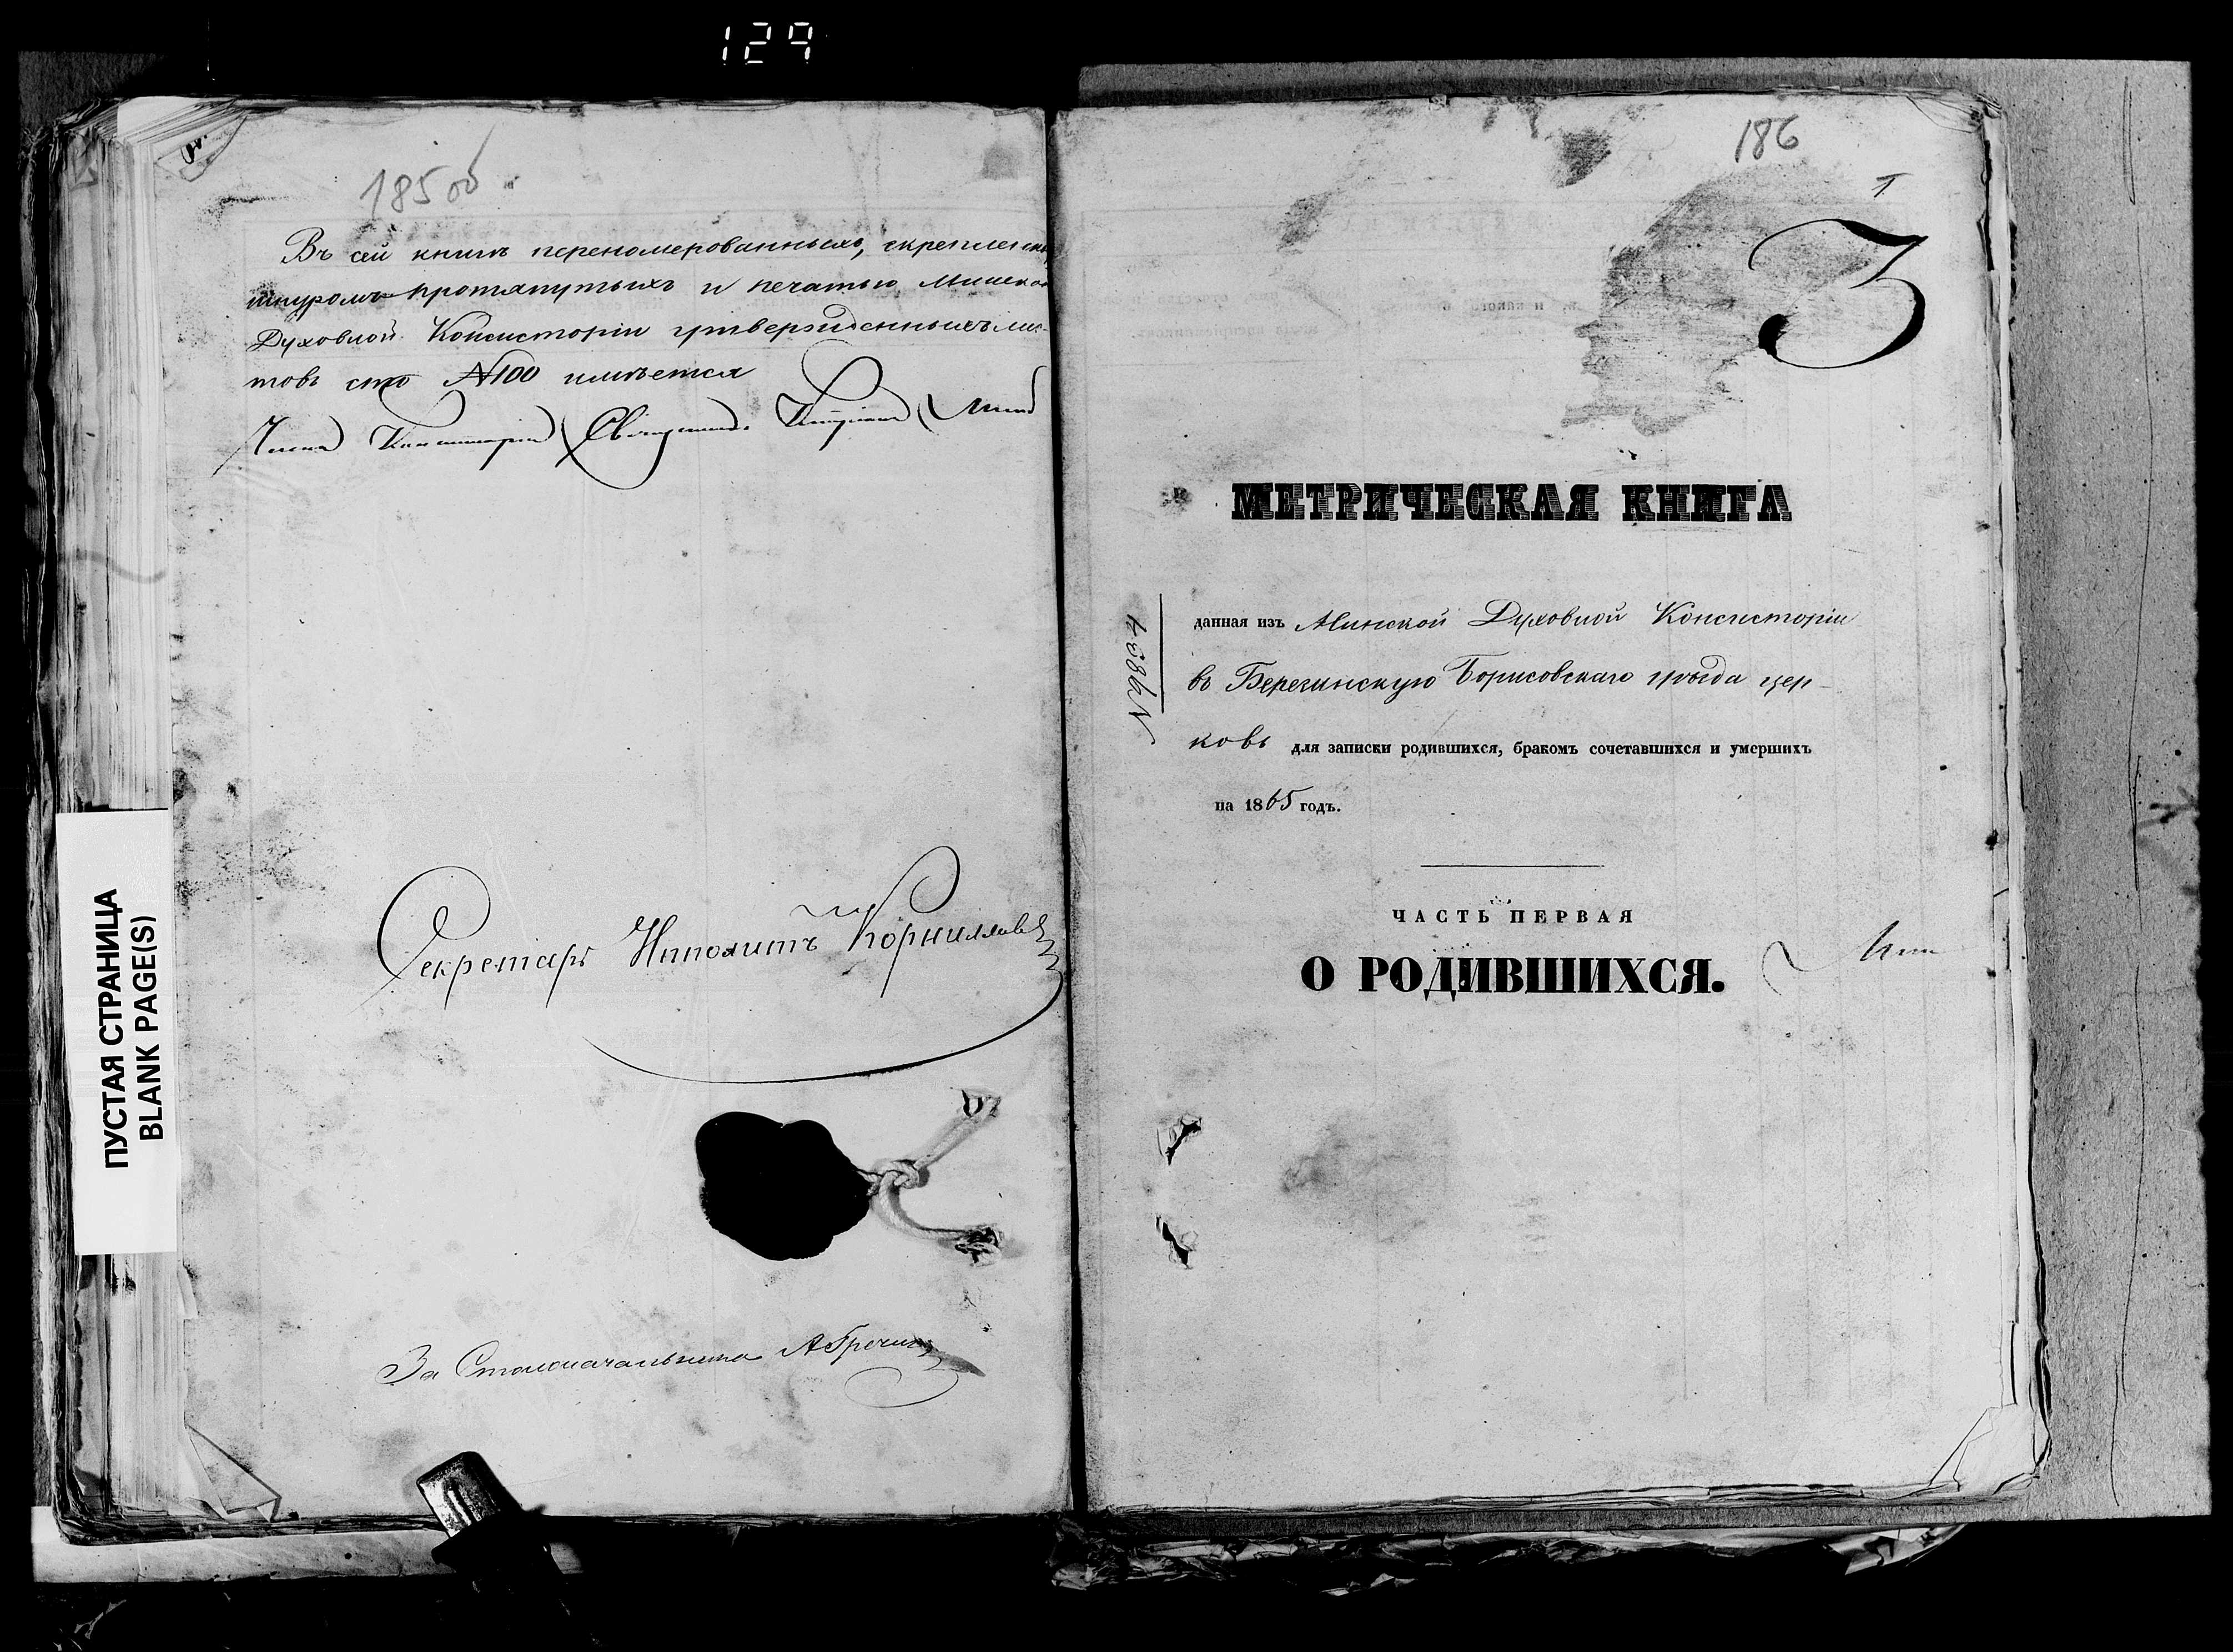 129
185 об
Въ сей книгѣ переномерованныхъ, скрепленн
шнуромъ протянутыхъ и печатью Минской
Духовной Консисторіи утвержденныхъ лис-
товъ сто №100 имѣется
Членъ Консисторіи Священникъ
Секретарь Ипполитъ Корниловъ
За Столоначальника
ПУСТАЯ СТРАНИЦА
BLANK PAGE(S)
186
1
3
МЕТРИЧЕСКАЯ КНИГА
данная изъ Минской Духовной Консисторіи
въ Березинскую Борисовскаго уѣзда цер-
ковь для записки родившихся, бракомъ сочетавшихся и умершихъ
на 1865 годъ.
ЧАСТЬ ПЕРВАЯ
О РОДИВШИХСЯ.
№ 9834